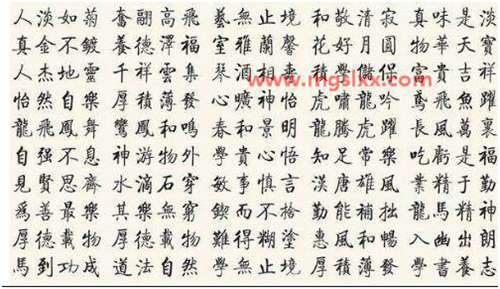 人淡如菊 奮翮高飛 藝無止境 和敬清寂 真味是淡
真金不鍍 養德澤福 室雅蘭馨 花好月圓 物華天寶
人杰地靈 千祥雲集 琴酒相 積學儲寶 富貴吉祥
怡然自樂 厚積薄發 心曠神怡 虎嘯龍吟 鳶飛魚躍
龍飛鳳舞 鸞鳳和鳴 春和景明 龍騰虎躍 長風萬裏
自强不息 神游物外 學貴心悟 知足常樂 吃虧是福
見賢思齊 水滴石穿 敏事慎言 漢唐雄風 業精于勤
爲善最樂 其樂無窮 鍥而不捨 勤能補拙 龍馬精神
厚德載物 厚德載物 難得糊塗 惠風和暢 入幽出朗
馬到功成 道法自然 學無止境 厚積薄發 學書養志
www.mgslxx.com